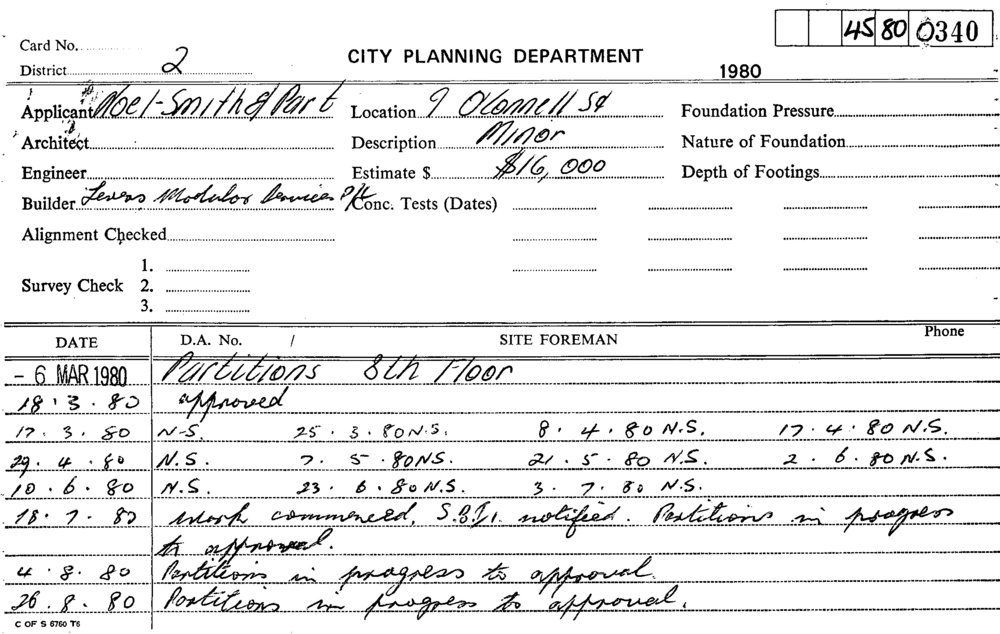 45 80 0340
Card No.
District 2
CITY PLANNING DEPARTMENT
1980
Applicant Noel-Smith & Part Location 9 O'Connell St Foundation Pressure
Architect Description Minor Nature of Foundation
Engineer Estimate $ $16,000 Depth of Footings
Builder Levers Modular Services P/L Conc. Tests (Dates)
Alignment Checked
1.
Survey Check 2.
3.
DATE D.A. No. / SITE FOREMAN Phone
- 6 MAR 1980 Partitions 8th Floor
18.3.80 approved
17.3.80 N-S. 25.3.80 N.S. 8.4.80 N.S. 17.4.80 N.S.
29.4.80 N.S. 7.5.80 NS. 21.5.80 N.S. 2.6.80 N.S.
10.6.80 N.S. 23.6.80 N.S. 3.7.80 N.S.
18.7.80 Work commenced, S.B.I. notified. Partitions in progress
to approval.
4.8.80 Partitions in progress to approval.
26.8.80 Partitions in progress to approval.
C OF S 6760 T6